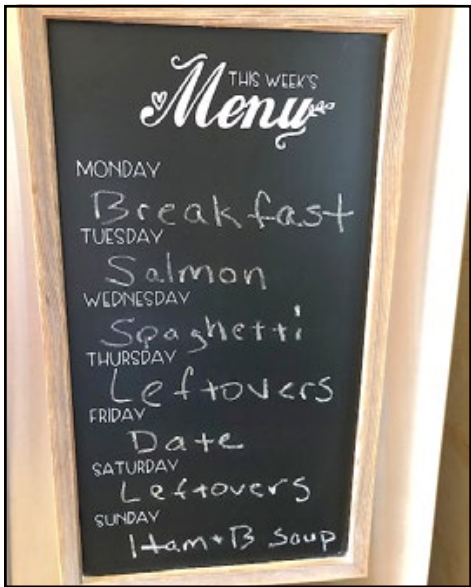 THIS WEEK'S
Menu
MONDAY
Breakfast
TUESDAY
Salmon
WEDNESDAY
Spaghetti
THURSDAY
Leftovers
FRIDAY
Date
SATURDAY
Leftovers
SUNDAY
Ham + B Soup